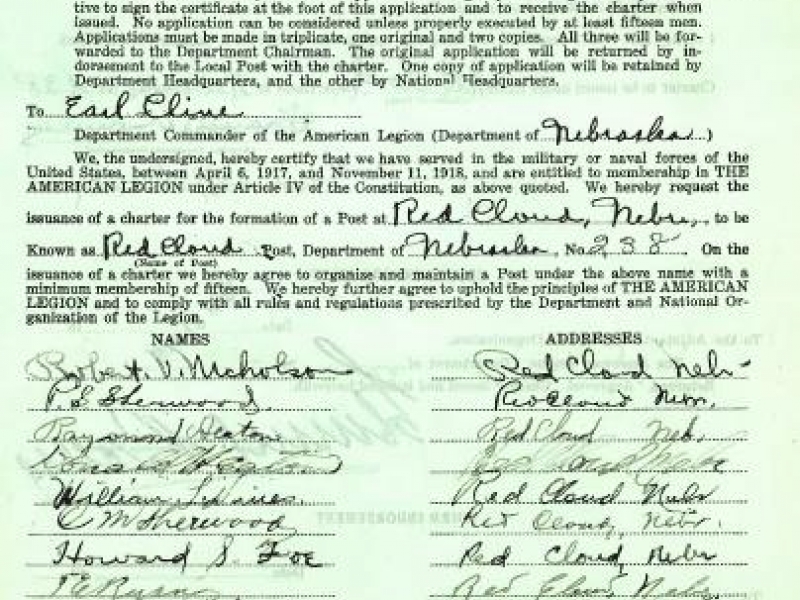 tive to sign the certificate at the foot of this application and to receive the charter when
issued. No application can be considered unless properly executed by at least fifteen men.
Applications must be made in triplicate, one original and two copies. All three will be for-
warded to the Department Chairman. The original application will be returned by in-
dorsement to the Local Post with the charter. One copy of application will be retained by
Department Headquarters, and the other by National Headquarters.
To Earl Cline
Department Commander of the American Legion (Department of Nebraska)
We, the undersigned, hereby certify that we have served in the military or naval forces of the
United States, between April 6, 1917, and November 11, 1918, and are entitled to membership in THE
AMERICAN LEGION under Article IV of the Constitution, as above quoted. We hereby request the
issuance of a charter for the formation of a Post at Red Cloud, Nebr., to be
Known as Red Cloud Post, Department of Nebraska, No. 238 On the
(Name of Post)
issuance of a charter we hereby agree to organise and maintain a Post under the above name with a
minimum membership of fifteen. We hereby further agree to uphold the principles of THE AMERICAN
LEGION and to comply with all rules and regulations prescribed by the Department and National Or-
ganization of the Legion.
NAMES ADDRESSES
Robert. V. Nicholson Red Cloud Nebr
P. E. Sherwood. Red Cloud
Raymond Deaton Red Cloud Neb.
William Red Cloud Nebr
C M Sherwood Red Cloud, Nebr.
Howard S. Foe Red Cloud Nebr
Red Cloud, Nebr.